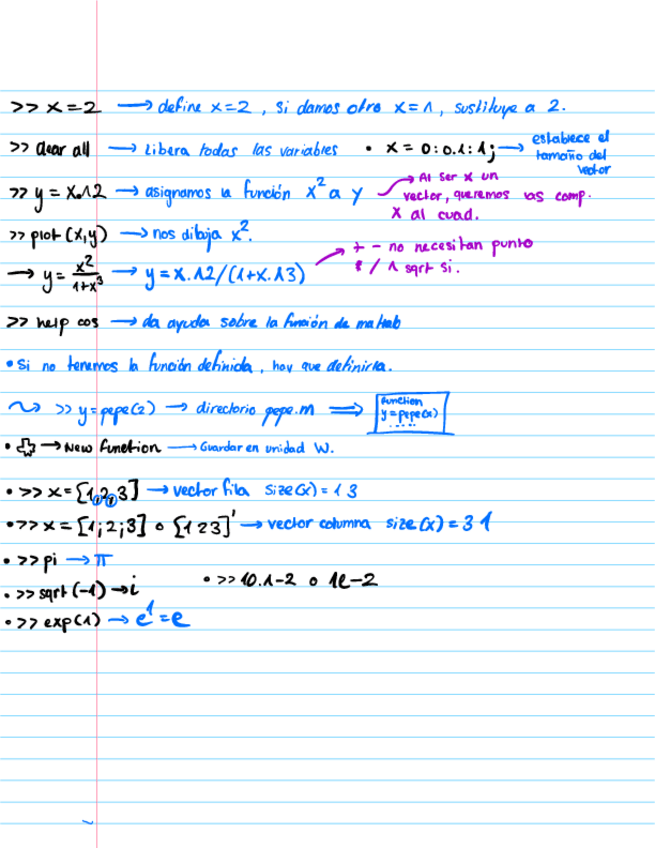 >> x = 2 → define x=2, si damos otro x=1, sustituye a 2.
>> clear all → Libera todas las variables • x = 0:0.1:1; → establece el tamaño del vector
>> y = x.^2 → asignamos la función x² a y → Al ser x un vector, queremos las comp. x al cuad.
>> plot (x,y) → nos dibuja x².
→ y = x²/1+x³ → y = x.^2/(1+x.^3) → + - no necesitan punto
* / ^ sqrt si.
>> help cos → da ayuda sobre la función de matlab
• Si no tenemos la función definida, hay que definirla.
~> >> y = pepe(2) → directorio pepe.m ⇒ function y = pepe(x) .....
• ✚ → New Function → Guardar en unidad W.
• >> x = [1,2,3] → vector fila size(x) = 1 3
• >> x = [1;2;3] o [1 2 3]' → vector columna size(x) = 3 1
• >> pi → π
• >> sqrt (-1) → i • >> 10.^-2 o 1e-2
• >> exp(1) → e¹ = e